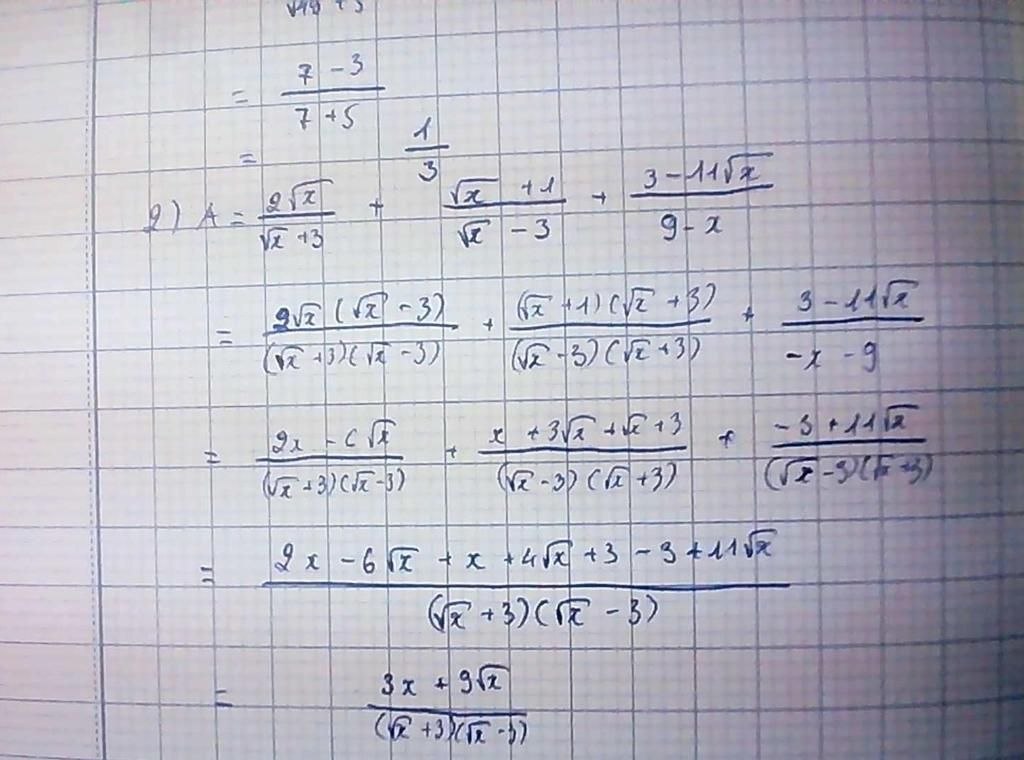 = (7 - 3)/(7 + 5)
= 1/3
2) A = 2√x/(√x + 3) + (√x + 1)/(√x - 3) + (3 - 11√x)/(9 - x)
= 2√x(√x - 3)/((√x + 3)(√x - 3)) + (√x + 1)(√x + 3)/((√x - 3)(√x + 3)) + (3 - 11√x)/(-x - 9)
= (2x - 6√x)/((√x + 3)(√x - 3)) + (x + 3√x + √x + 3)/((√x - 3)(√x + 3)) + (-3 + 11√x)/((√x - 3)(√x + 3))
= (2x - 6√x + x + 4√x + 3 - 3 + 11√x)/((√x + 3)(√x - 3))
= (3x + 9√x)/((√x + 3)(√x - 3))